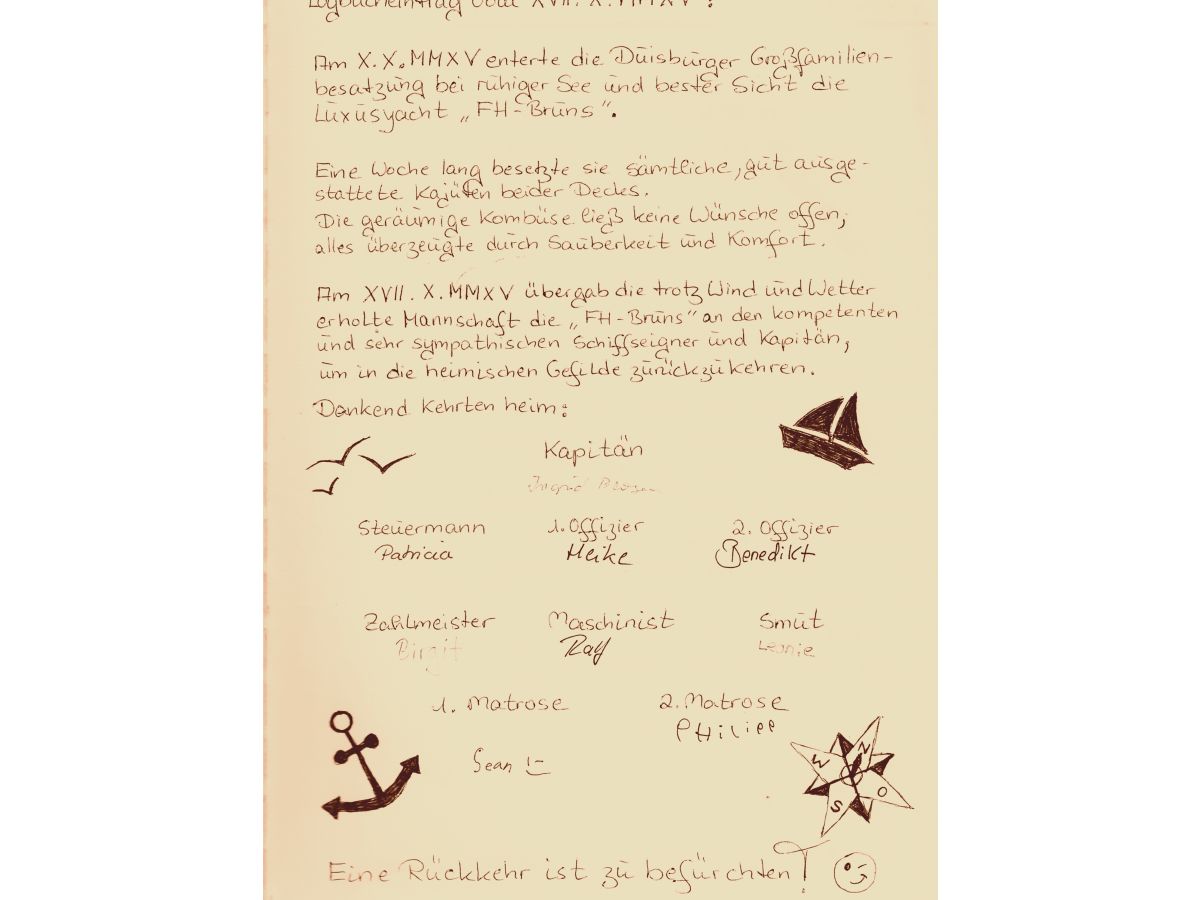 Logbucheintrag vom XVII. X. MMXV:
Am X. X. MMXV enterte die Duisburger Großfamilien-
besatzung bei ruhiger See und bester Sicht die
Luxusyacht „FH-Bruns“.
Eine Woche lang besetzte sie sämtliche, gut ausge-
stattete Kajüten beider Decks.
Die geräumige Kombüse ließ keine Wünsche offen,
alles überzeugte durch Sauberkeit und Komfort.
Am XVII. X. MMXV übergab die trotz Wind und Wetter
erholte Mannschaft die „FH-Bruns“ an den kompetenten
und sehr sympathischen Schiffseigner und Kapitän,
um in die heimischen Gefilde zurückzukehren.
Dankend kehrten heim:
Kapitän
Ingrid
Steuermann 1. Offizier 2. Offizier
Patricia Heike Benedikt
Zahlmeister Maschinist Smut
Birgit Ralf Leonie
1. Matrose 2. Matrose
PHiliPP
Sean
N
W
O
S
Eine Rückkehr ist zu befürchten!